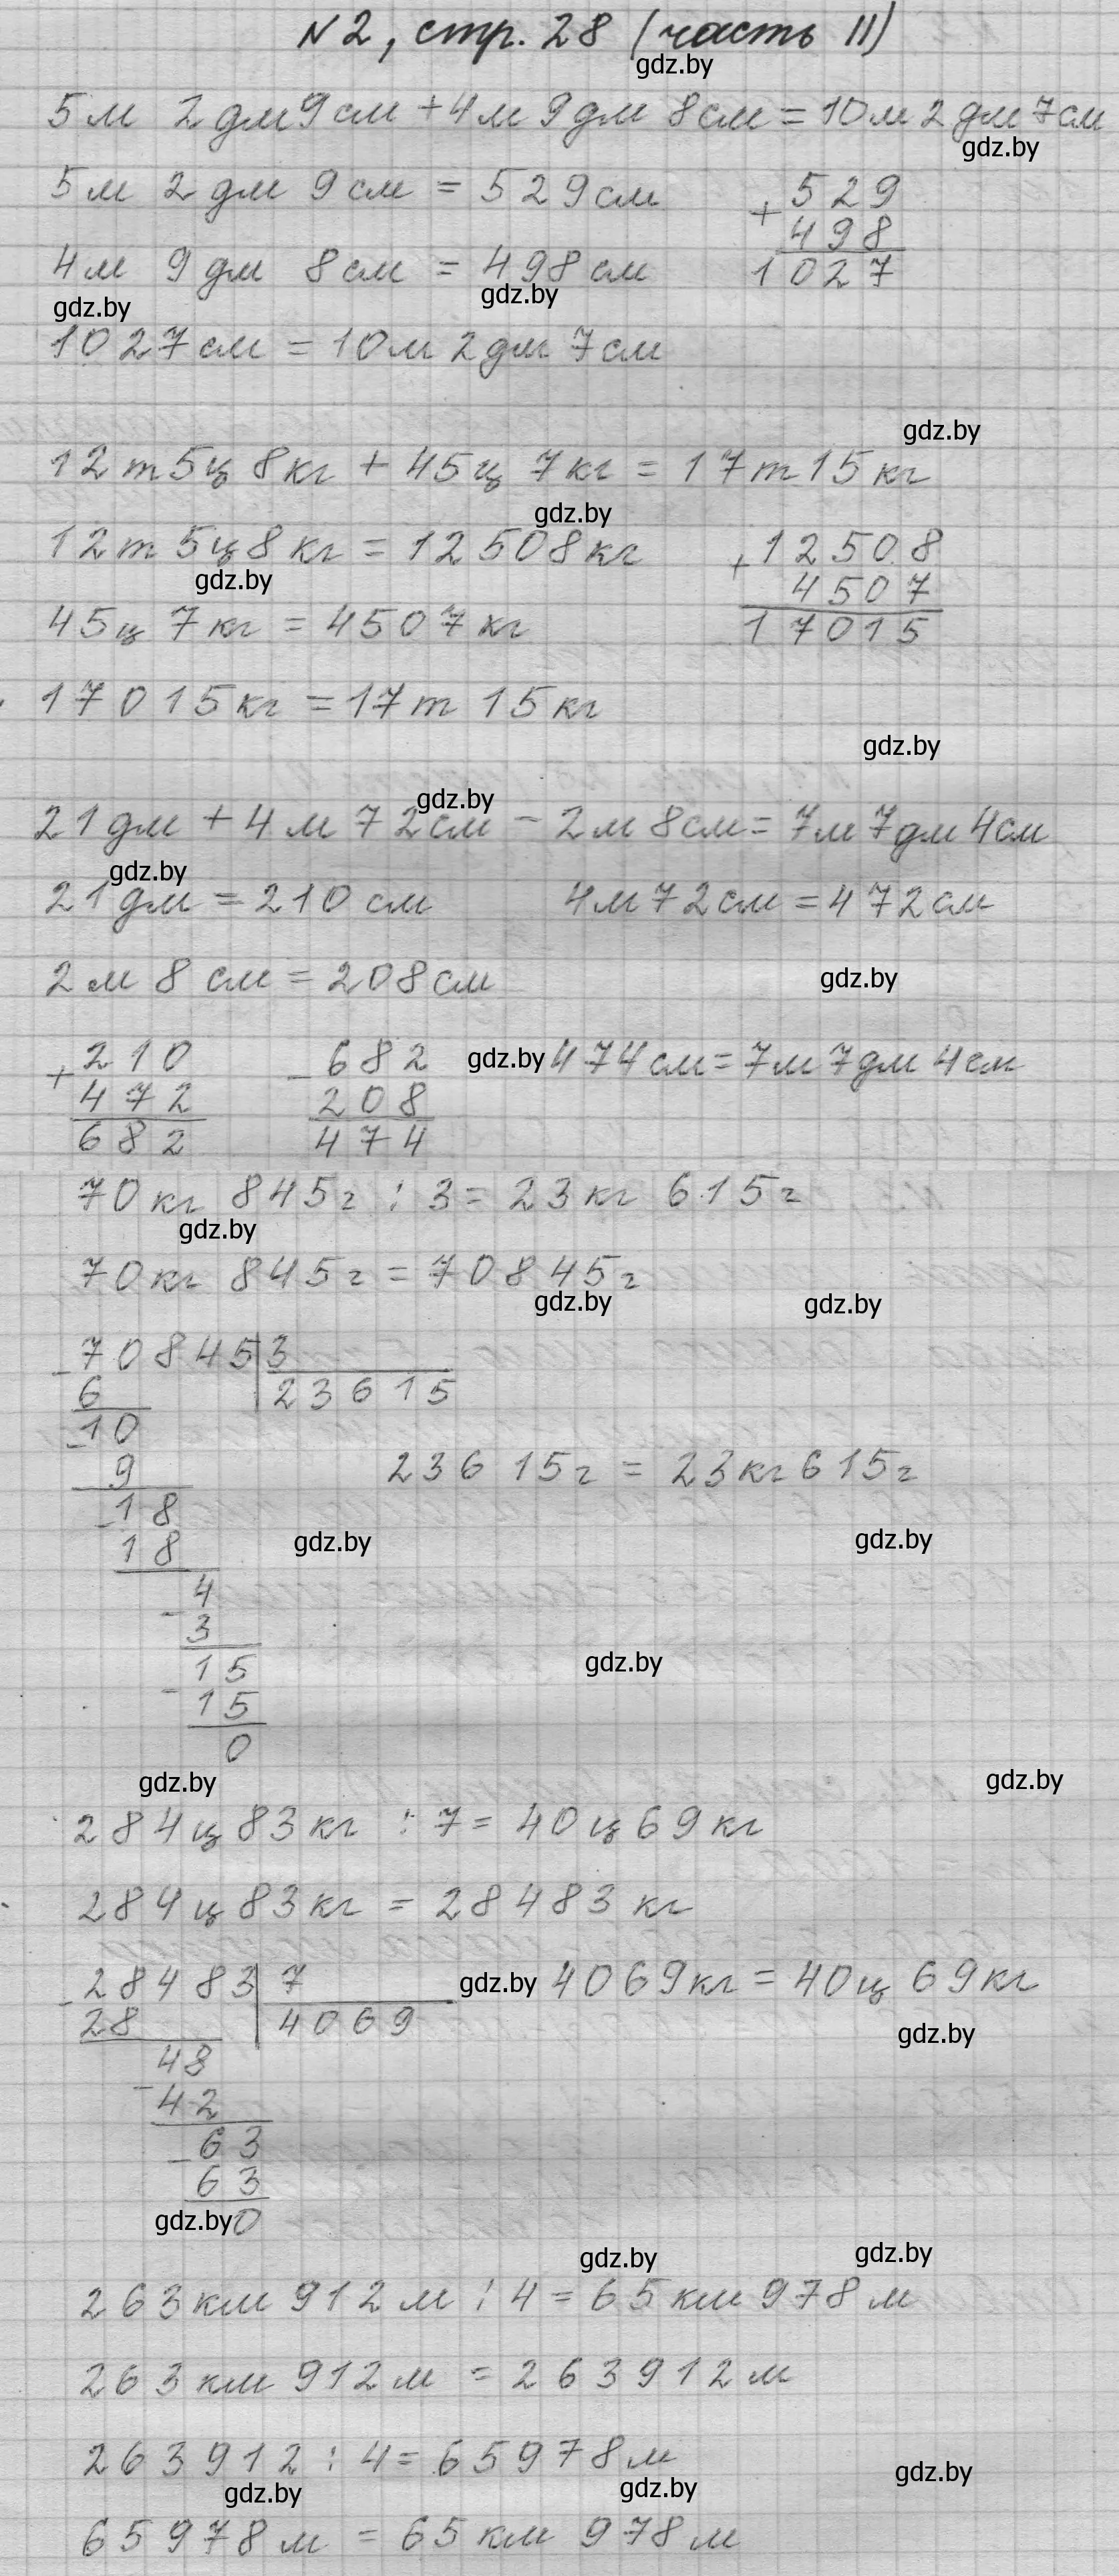 N2, стр. 28 (часть II)
gdz.by
5м 2дм 9см + 4м 9дм 8см = 10м 2дм 7см
gdz.by
5м 2дм 9см = 529см
+ 529
498
1027
4м 9дм 8см = 498см
gdz.by
gdz.by
1027см = 10м 2дм 7см
gdz.by
12т 5ц 8кг + 45ц 7кг = 17т 15кг
gdz.by
12т 5ц 8кг = 12508кг
+ 12508
4507
17015
gdz.by
45ц 7кг = 4507кг
17015кг = 17т 15кг
gdz.by
gdz.by
21дм + 4м 72см - 2м 8см = 7м 7дм 4см
gdz.by
21дм = 210см 4м 72см = 472см
2м 8см = 208см
gdz.by
+ 210
472
682
- 682
208
474
gdz.by
474см = 7м 7дм 4см
70кг 845г : 3 = 23кг 615г
gdz.by
70кг 845г = 70845г
gdz.by
gdz.by
- 70845 | 3
6 23615
- 10
9
23615г = 23кг 615г
- 18
18
gdz.by
gdz.by
- 4
3
gdz.by
- 15
15
0
gdz.by
gdz.by
284ц 83кг : 7 = 40ц 69кг
284ц 83кг = 28483кг
- 28483 | 7
28 4069
gdz.by
4069кг = 40ц 69кг
gdz.by
- 48
42
- 63
63
0
gdz.by
gdz.by
gdz.by
263км 912м : 4 = 65км 978м
263км 912м = 263912м
263912 : 4 = 65978м
gdz.by
gdz.by
gdz.by
65978м = 65км 978м